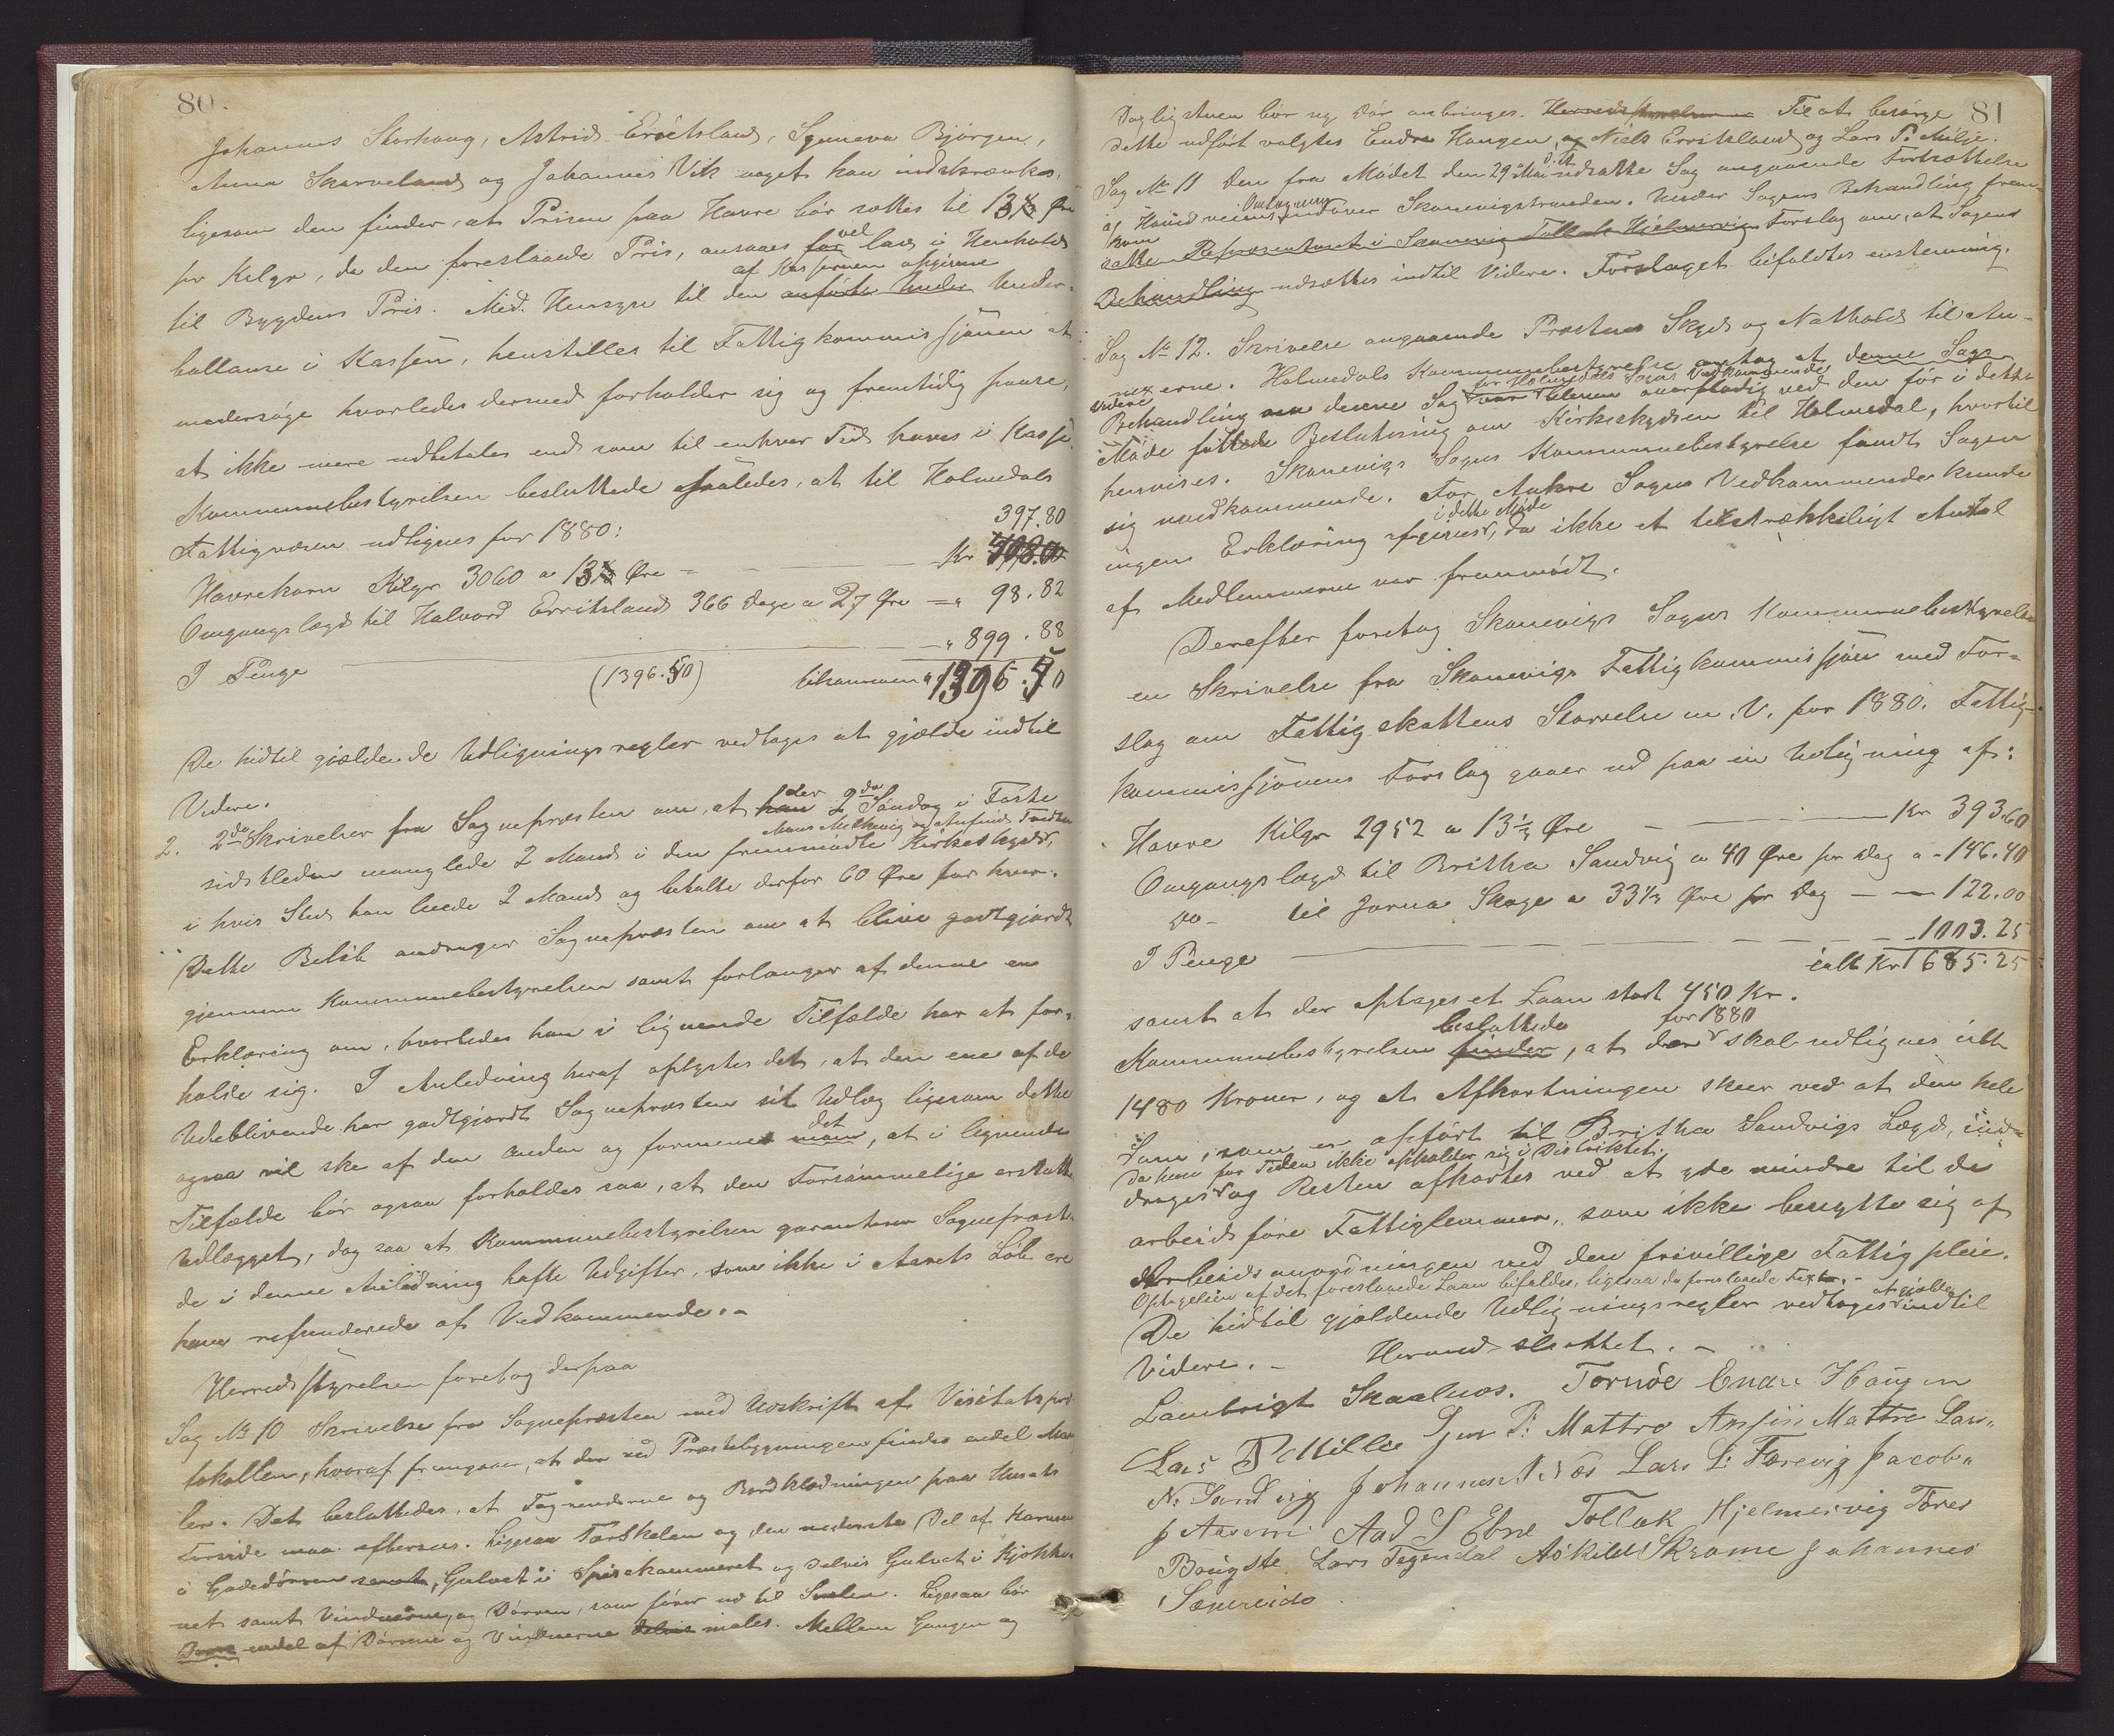 80.
Johannes Storhaug, Astrid Eritsland, Synneva Bjørgen,
Anna Skarveland og Johannes Vik noget kan indskrænkes,
ligesom den finder, at Prisen paa Havre bør sættes til 13 Øre
pr Kilgr, da den foreslaaede Pris, ansaaes for vel lav i Henhold
til Bygdens Pris. Med Hensyn til den anførte Under af Kassereren opgivne Under-
ballance i Kassen, henstilles til Fattigkommissjonen at
undersøge hvorledes dermed forholder sig og fremtidig passe,
at ikke mere udbetales end som til enhver Tid haves i Kasse.
Kommunebestyrelsen besluttede saaledes, at til Holmedals
Fattigvæsen udlignes for 1880:
397.80
Havrekorn Kilgr 3060 a 13 Øre = Kr
Omgangslægd til Halvord Erritsland 366 Dage a 27 Øre = " 98.82
I Penge " 899.88
(1396.50) tilsammen " 1396.50
De hidtil gjældende Udligningsregler vedtages at gjælde indtil
Videre.
2. 2de Skrivelser fra Sognepræsten om, at han der 2den Søndag i Faste
sidstleden manglede 2 Mand i den fremmødte Kirkeskyds,
i hvis Sted han leiede 2 Mand og betalte derfor 60 Øre for hver.
Dette Beløb andrager Sognepræsten om at blive godtgjordt
gjennem Kommunebestyrelsen samt forlanger af denne en
Erklæring om, hvorledes han i lignende Tilfælde har at for-
holde sig. I Anledning heraf oplystes det, at den ene af de
Udeblivende har godtgjordt Sognepræsten sit Udlæg ligesom dette
ogsaa vil ske af den anden og formenes man det, at i lignende
Tilfælde bør ogsaa forholdes saa, at den Forsømmelige erstatter
Udlægget, dog saa at Kommunebestyrelsen garanterer Sognepræsten
de i denne Anledning hafte Udgifter, som ikke i Aarets Løb ere
ham refunderede af Vedkommende.-
Herredsstyrelsen foretog derpaa
Sag No 10 Skrivelse fra Sognepræsten med Udskrift af Visitatspro-
tokollen, hvoraf fremgaar, at der ved Præstebygningen findes endel Mang-
ler. Det besluttedes, at Tagrenderne og Bordklædningen paa Husets
Forside maa efterses. Ligesaa Dørskelen og den nederste Del af Karmen
i Gadedørren samt, Gulvet i Spisekammeret og delvis Gulvet i Kjøkke-
net samt Vinduerne, og Dørren, som fører ud til Svalen. Ligesaa bør
endel af Dørrene og Vinduerne delvis males. Mellem Gangen og
81
Dagligstuen bør ny Dør anbringes. Herredsstyrelsen Til at besørge
dette udført valgtes Endre Haugen og Niels Erritsland og Lars P. Milje.
Sag No 11 Den fra Mødet den 29 Mai d.A. udsatte Sag angaaende Fortsættelse
af Hovedveiens Omlægning indover Skonevigstranden. Under Sagens Behandling frem-
kom
satte Repræsentant i Skonevig Tollak Hjelmervig Forslag om, at Sagens
Behandling udsættes indtil Videre. Forslaget bifaldtes enstemmig.
Sag No 12. Skrivelse angaaende Præstens Skyds og Nathold til An-
nexerne. Holmedals Kommunebestyrelse antog at denne Sags
videre Behandling om denne Sag for Holmedals Sogns Vedkommende var bleven overflødig ved den før i dette
Møde fattede Beslutning om Kirkeskydsen til Holmedal, hvortil
henvises. Skonevigs Sogns Kommunebestyrelse fandt Sagen
sig uvedkommende. For Aakre Sogns Vedkommende kunde
ingen Erklæring afgives i dette Møde, da ikke et tilstrækkeligt Antal
af Medlemmerne var fremmødt.
Derefter foretog Skonevigs Sogns Kommunebestyrelse
en Skrivelse fra Skonevigs Fattigkommissjon med For-
slag om Fattigskattens Størrelse m.V. for 1880. Fattig-
kommissjonens Forslag gaaer ud paa en Udligning af:
Havre Kilgr 2952 a 13⅓ Øre Kr 393.60
Omgangslægd til Britha Sandvig a 40 Øre pr Dag a - 146.40
Do- til Jorna Skoge a 33⅓ Øre pr Dag - 122.00
I Penge - 1003.25
ialt Kr 1685.25
samt at der optages et Laan stort 450 Kr.
Kommunebestyrelsen finder besluttede, at der for 1880 skal udlignes ialt
1480 Kroner, og at Afkortningen skeer ved at den hele
Sum, som er opført til Britha Sandvigs Lægd, ind-
drages da hun for Tiden ikke opholder sig i Distriktet. og Resten afkortes ved at yde mindre til de
arbeidsføre Fattiglemmer, som ikke benytte sig af
Arbeidsanordningen ved den frivillige Fattigpleie.
Optagelsen af det foreslaaede Laan bifaldes, ligesaa de foreslaaede Taxter.-
De hidtil gjældende Udligningsregler vedtages at gjælde indtil
Videre.- Hermed sluttet.-
Lambrigt Skaalnæs. Tornöe Endre Haugen
Lars P Millie Jon P: Mattre Ansjin Mattre Lars
N. Sandvig Johannes Næs Lars L: Færevig Jacob
J Aasem Aad S Ebne Tollak Hjelmervig Tores
Bougste Lars Tegendal Askild Skrome Johannes
Sæmreide